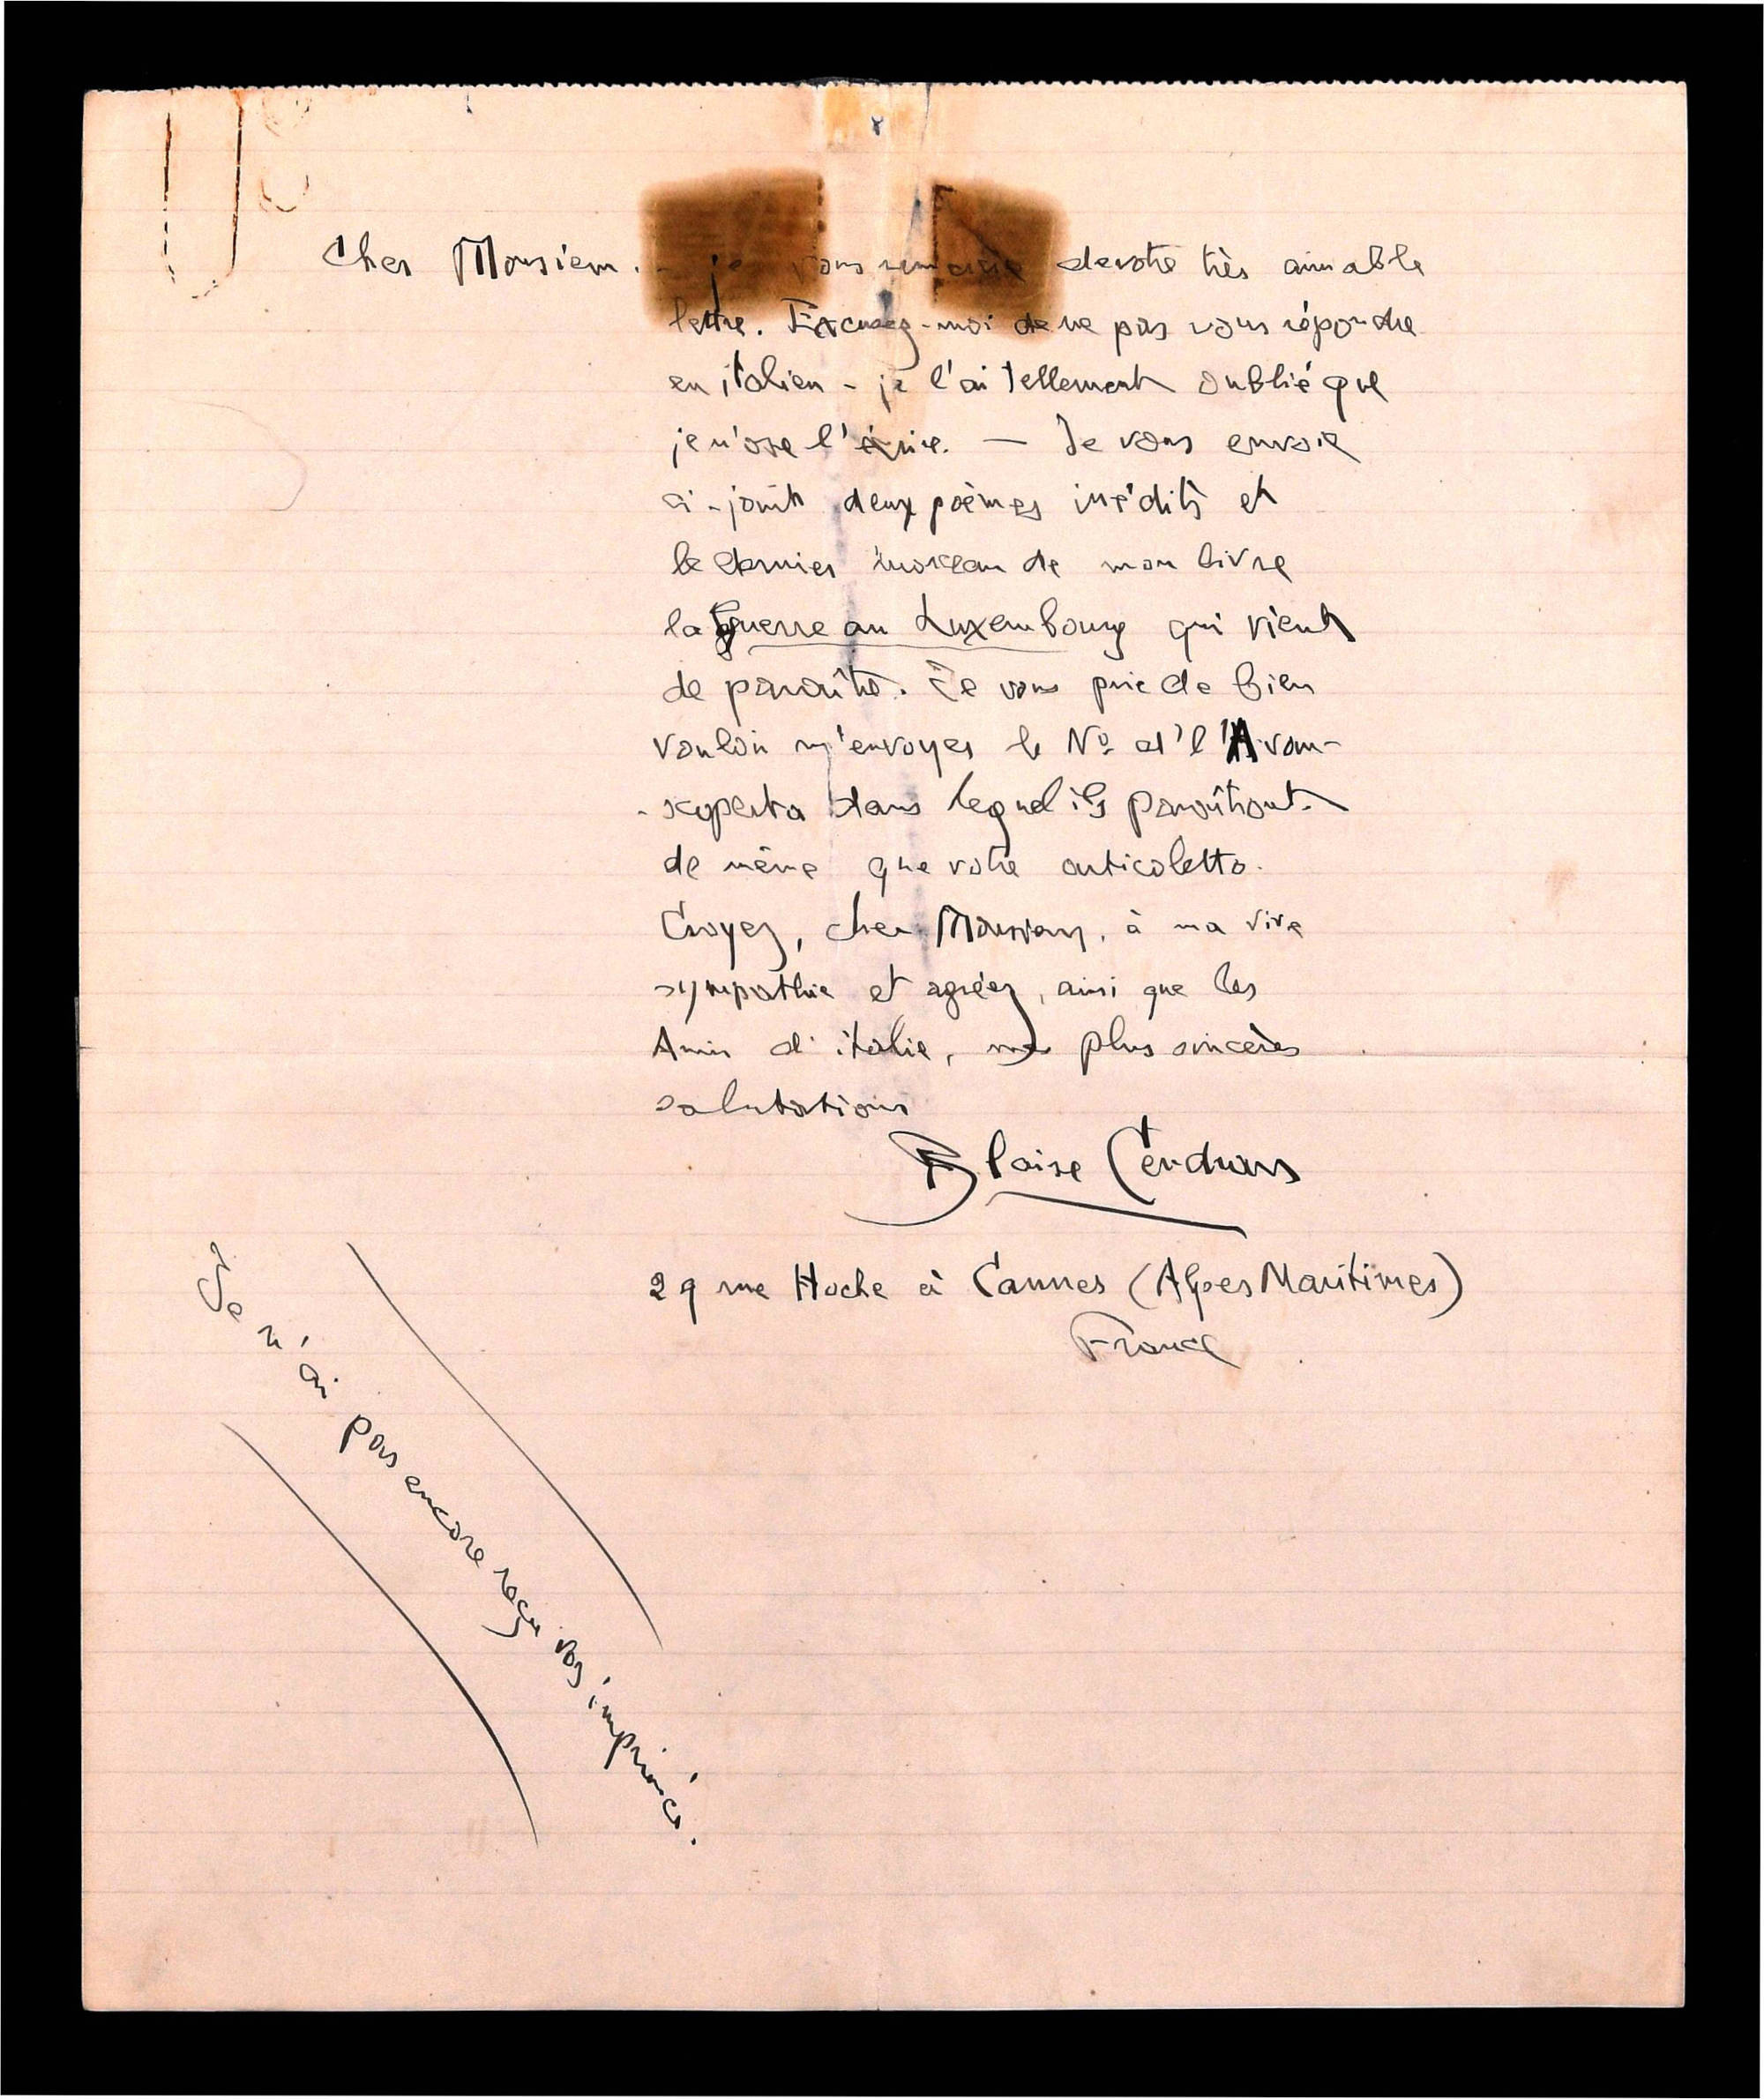 Cher Monsieur. - je vous remercie de votre très aimable
lettre. Excusez-moi de ne pas vous répondre
en italien - je l'ai tellement oublié que
je n'ose l'écrire. — Je vous envoie
ci-joint deux poèmes inédits et
le dernier morceau de mon livre
la guerre au Luxembourg qui vient
de paraître. Je vous prie de bien
vouloir m'envoyer le No d'l'Avan-
-scoperta dans lequel ils paraîtront.
de même que votre articoletto.
Croyez, cher Monsieur, à ma vive
sympathie et agréez, ainsi que les
Amis d'italie, mes plus sincères
salutations
Blaise Cendrars
29 rue Hoche à Cannes (Alpes Maritimes)
France
Je n'ai pas encore reçu vos imprimés.